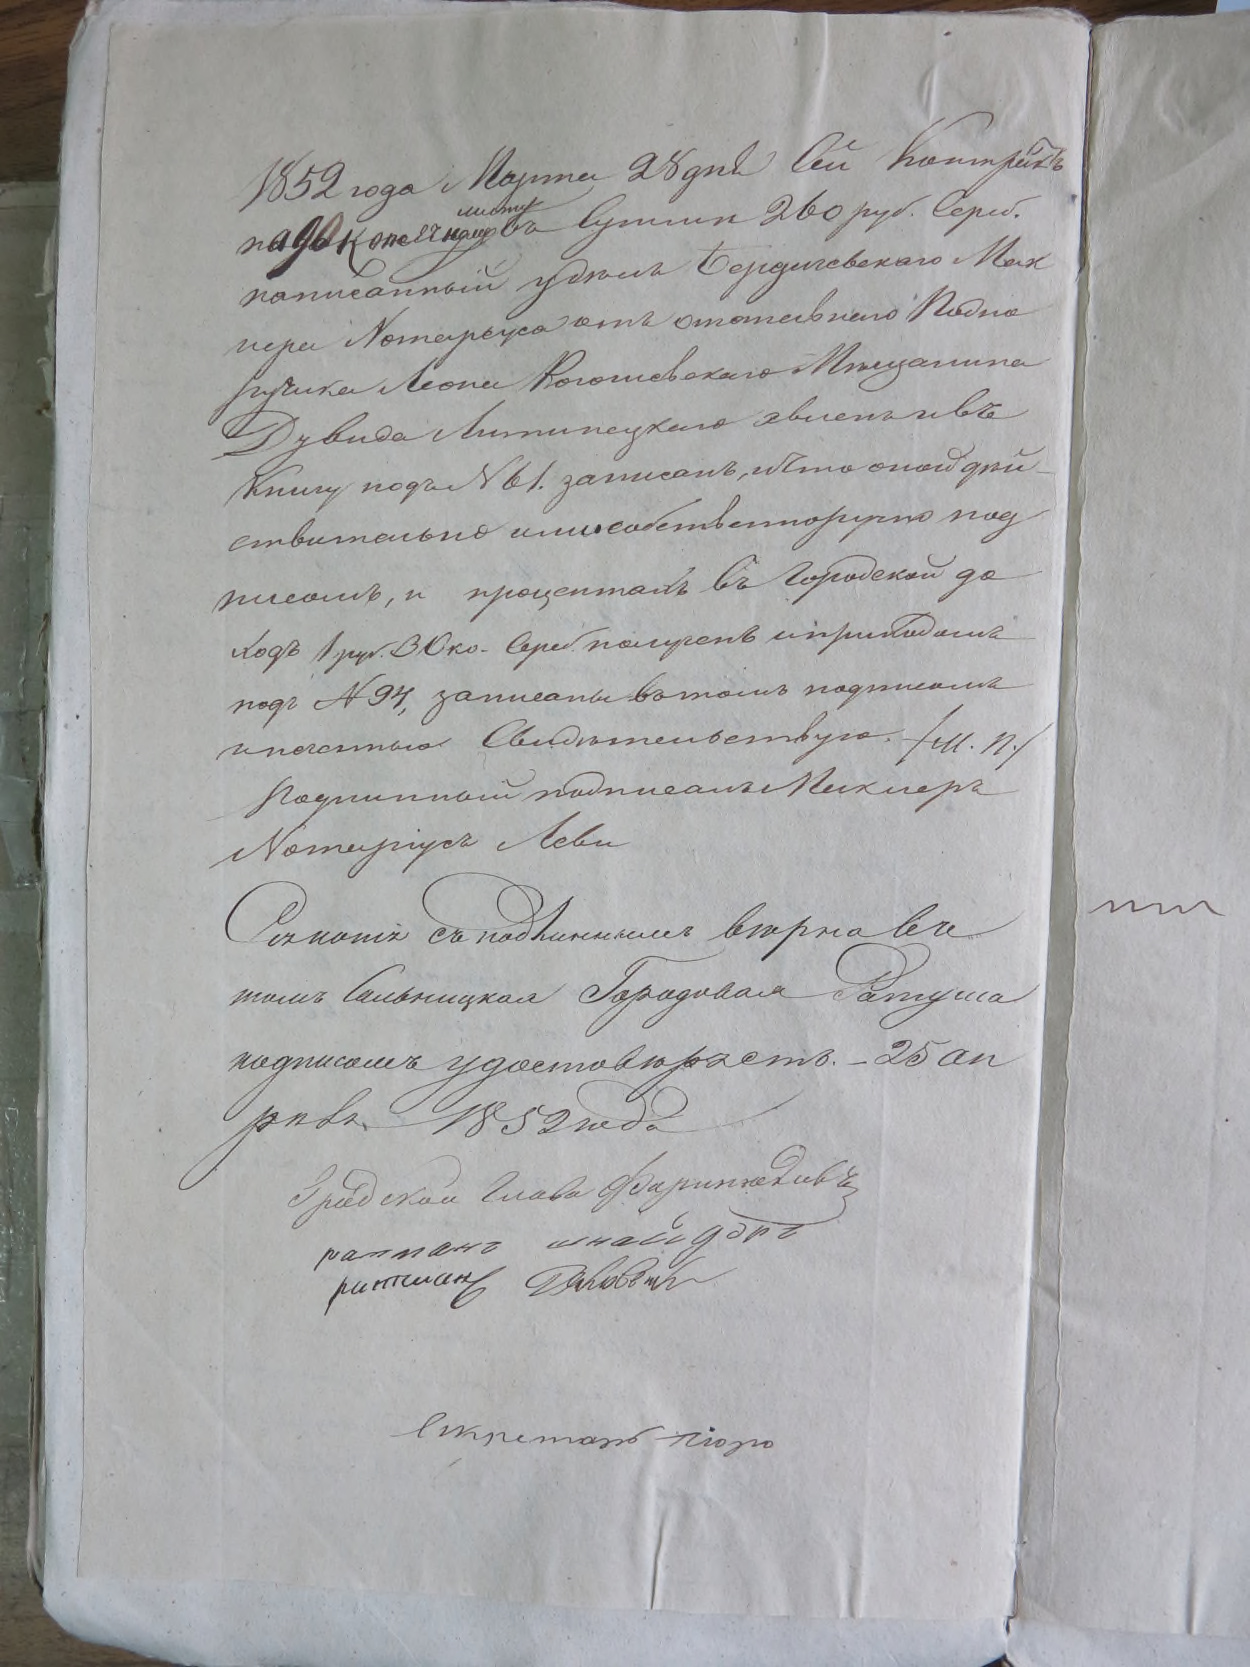 1852 года Марта 28 дня Сей Контрактъ
на 90 Копеечномъ листу въ Сумми 260 руб. Сереб.
написанный у дѣлъ Бердичевскаго Мак
лера Нотаріуса отъ отставнаго Подпо
ручика Леона Мѣщанина
Дувида Литинецкаго явленъ и въ
Книгу подъ № 61. записанъ, и что оной дѣй
ствительно ими собственноручно под
писомъ, и процентахъ въ Городской до
ходъ 1 руб. 30 ко. Сереб. получено и приходомъ
подъ № 94, записаны въ томъ подписомъ
и печатью Свидѣтельствую. /М. П./
Подлинный подписалъ Маклеръ
Нотаріусъ Леви
Съ подлиннымъ вѣрно въ че
томъ Сальницкая Городовая Ратуша
подписомъ удостовѣряетъ. – 25 ап
рѣля 1852 года
Градской Глава
ратманъ шнайдеръ
ратманъ
Секретарь